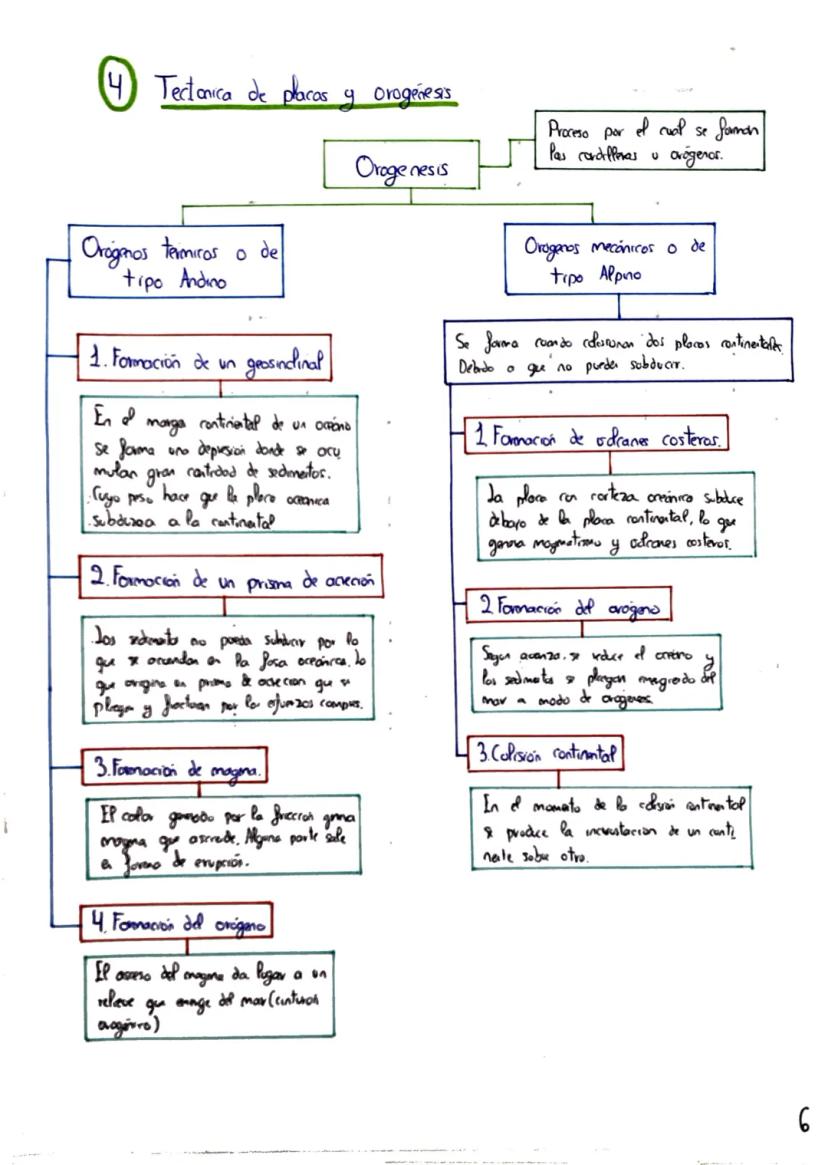 4 Tectonica de placas y orogénesis
Proceso por el cual se forman
las cordilleras u orógenos.
Orogenesis
Orógenos térmicos o de
tipo Andino
1. Formación de un geosinclinal
En el margen continental de un océano
se forma una depresión donde se acu
mulan gran cantidad de sedimentos.
Cuyo peso hace que la placa oceanica
subduzca a la continental
2. Formación de un prisma de acreción
Los sedimento no pueden subducir por lo
que se acumulan en la fosa oceánica. Lo
que origina un prisma de acrecion que se
pliegan y fracturan por los esfuerzos
3. Formación de magma.
El calor generado por la fricción genera
magma que asciende. Alguna parte sale
en forma de erupción.
4. Formación del orógeno
El ascenso del magma da lugar a un
relieve que emerge del mar (cinturon
orogénico)
Orógenos mecánicos o de
tipo Alpino
Se forma cuando colisionan dos placas continentales.
Debido a que no pueden subducir.
1. Formación de volcanes costeros.
La placa con corteza oceánica subduce
debajo de la placa continental, lo que
genera magmatismo y volcanes costeros.
2. Formación del orógeno
Segun avanza, se reduce el oceano y
los sedimentos se pliegan emergiendo del
mar a modo de orogenos.
3. Colisión continental
En el momento de la colisión continental
se produce la incrustacion de un conti
nente sobre otro.
6